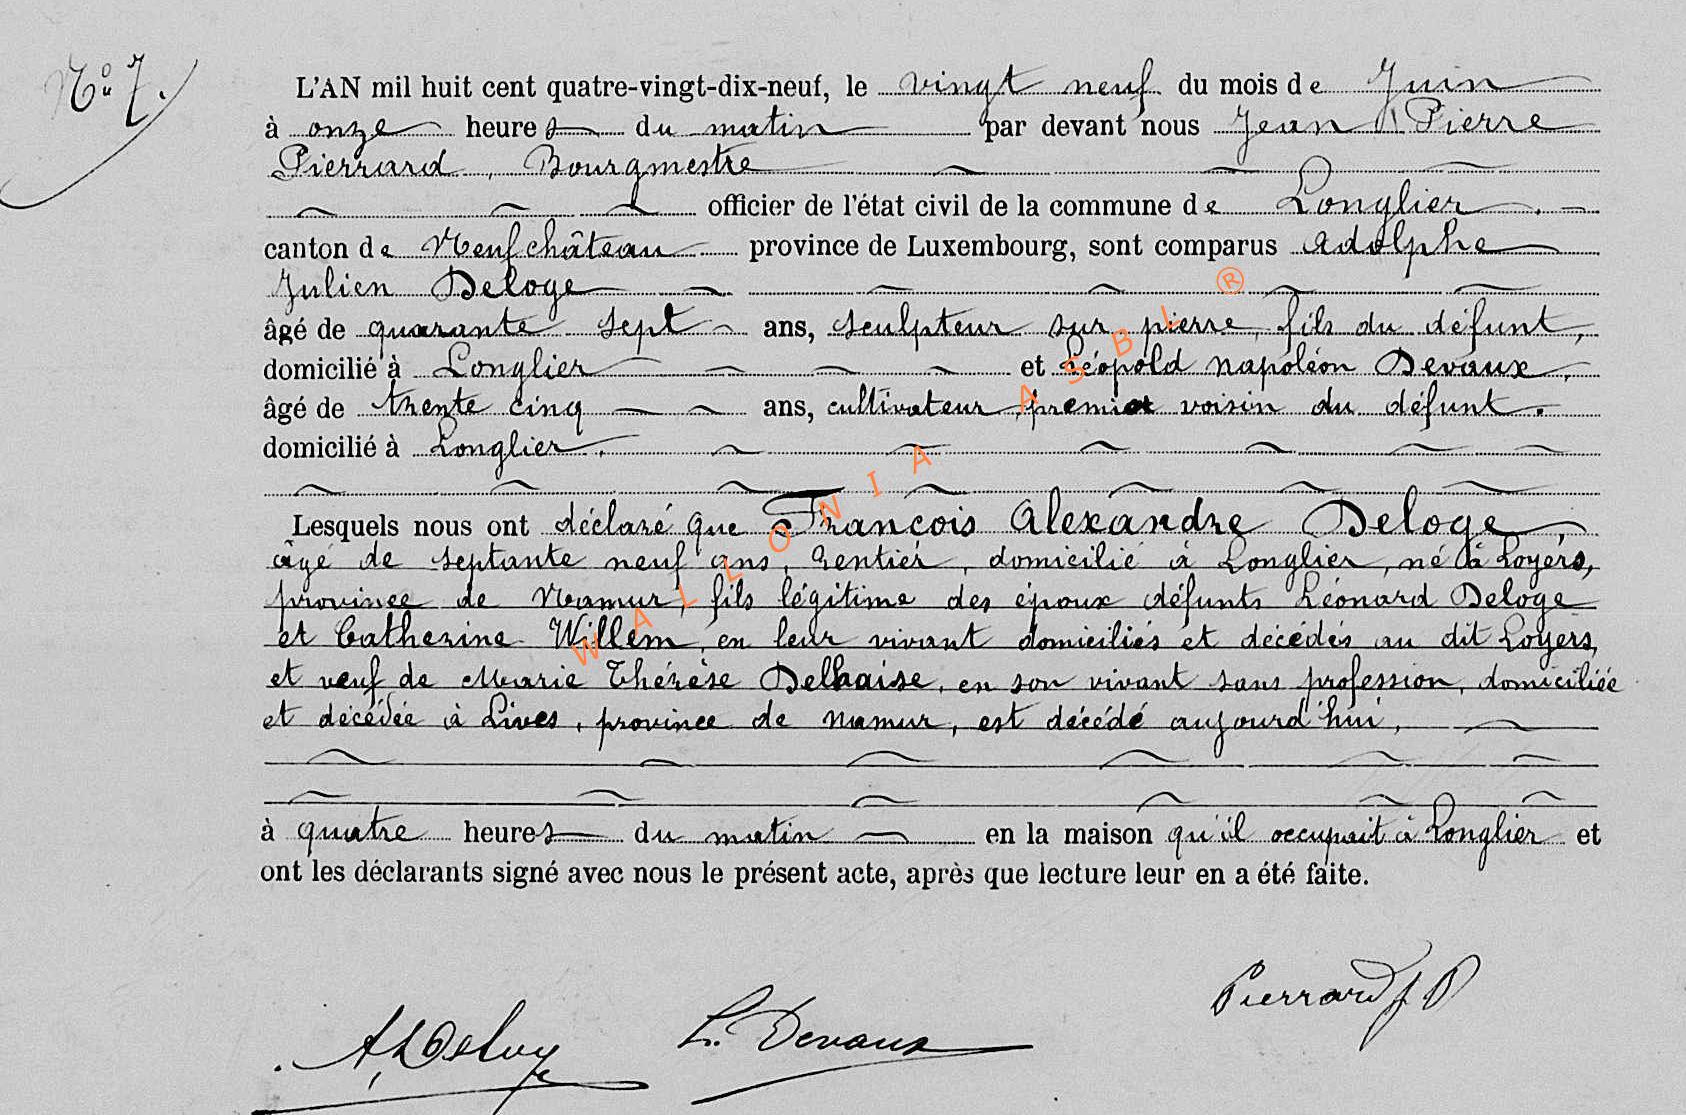 No 7.
L'AN mil huit cent quatre-vingt-dix-neuf, le vingt neuf du mois de Juin
à onze heures du matin par devant nous Jean Pierre
Pierrard, Bourgmestre
officier de l'état civil de la commune de Longlier.
canton de Neufchâteau province de Luxembourg, sont comparus Adolphe
Julien Deloge
âgé de quarante sept ans, sculpteur sur pierre, fils du défunt,
domicilié à Longlier et Léopold Napoléon Devaux,
âgé de trente cinq ans, cultivateur, premier voisin du défunt.
domicilié à Longlier.
Lesquels nous ont déclaré que François Alexandre Deloge
âgé de septante neuf ans, rentier, domicilié à Longlier, né à Loyers,
province de Namur, fils légitime des époux défunts Léonard Deloge
et Catherine Willem, en leur vivant domiciliés et décédés au dit Loyers,
et veuf de Marie Thérèse Delhaise, en son vivant sans profession, domiciliée
et décédée à Lives, province de Namur, est décédé aujourd'hui,
à quatre heures du matin en la maison qu'il occupait à Longlier et
ont les déclarants signé avec nous le présent acte, après que lecture leur en a été faite.
Pierrard J P
L. Devaux
WALLONIA ASBL ®